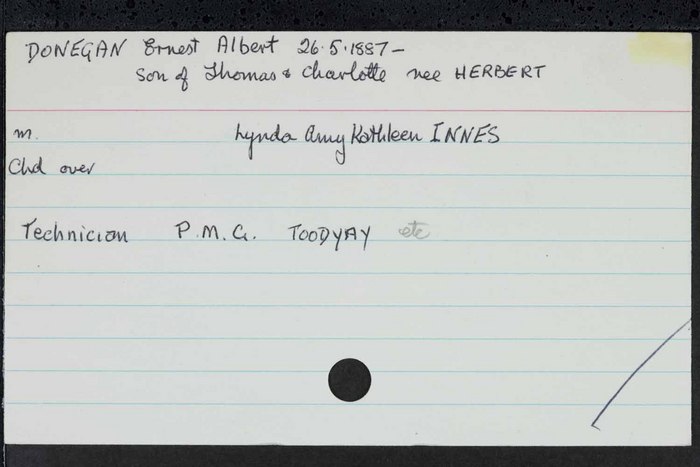 DONEGAN Ernest Albert 26.5.1887-
Son of Thomas & Charlotte nee HERBERT
m. Lynda Amy Kathleen INNES
Chd over
Technician P.M.G. TOODYAY etc